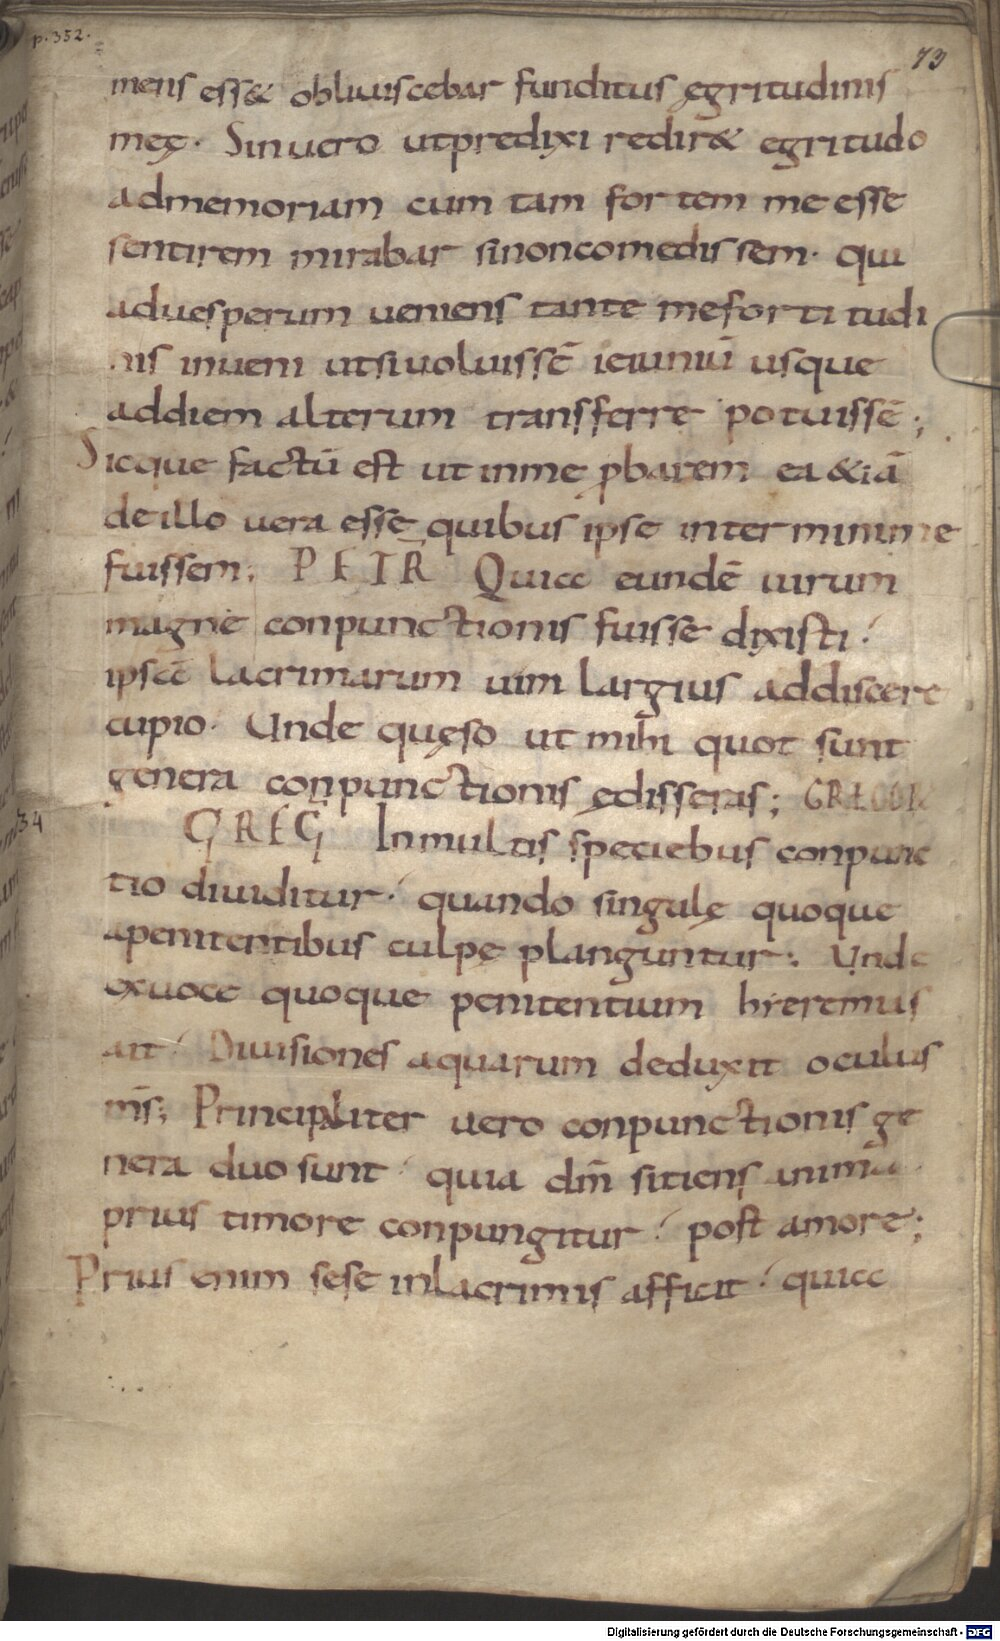 p. 352.
73
mens ess& obliuiscebar funditus ęgritudinis
meę. Sin uero utpredixi redir& egritudo
admemoriam cum tam fortem me esse
sentirem mirabar sinoncomedissem. qui
aduesperum ueniens tante mefortitudi
nis inueni utsiuoluissē ieiuniū usque
addiem alterum transferre potuissē;
Sicque factū est ut inme ꝓbarem ea &iā
deillo uera esse quibus ipse interminime
fuissem; PETR Quia eundē uirum
magne conpunctionis fuisse dixisti.
ipsā lacrimarum uim largius addiscere
cupio. Unde quęso ut mihi quot sunt
genera conpunctionis edisseras; GREGOR
34
GREG In multis speciebus conpunc
tio diuiditur. quando singulę quoque
apenitentibus culpę planguntur; Unde
exuoce quoque penitentium hieremias
ait. Diuisiones aquarum deduxit oculus
m̄s; Principaliter uero conpunctionis ge
nera duo sunt. quia dm̄ sitiens anima
prius timore conpungitur. post amore;
Prius enim sese inlacrimis afficit. quia
Digitalisierung gefördert durch die Deutsche Forschungsgemeinschaft - DFG